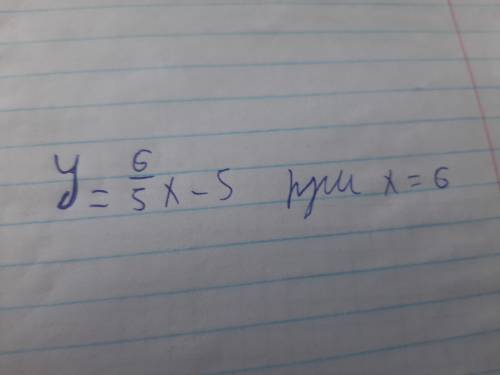 y = 6/5 x - 5 при x = 6